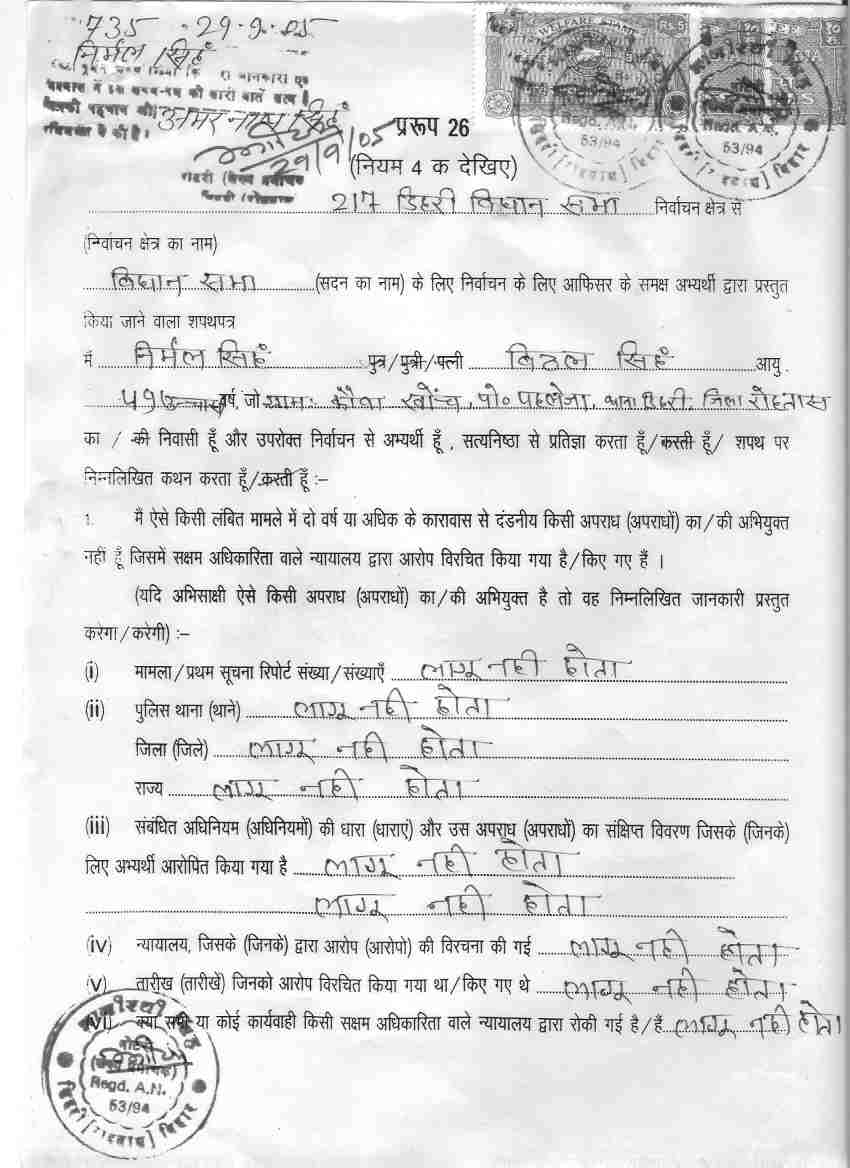 735 29.9.05
निर्मल सिंहं
WELFARE STAMP Rs 5
प्ररूप 26
29/9/05
(नियम 4 क देखिए)
217 डिहरी विधान सभा निर्वाचन क्षेत्र से
(निर्वाचन क्षेत्र का नाम)
विधान सभा (सदन का नाम) के लिए निर्वाचन के लिए आफिसर के समक्ष अभ्यर्थी द्वारा प्रस्तुत
किया जाने वाला शपथपत्र
में निर्मल सिंहं पुत्र/पुत्री/पत्नी सिंहं आयु
वर्ष, जो ग्रामः कौवा खोंच, पो० पहलेजा, थाना डिहरी, जिला रोहतास
का / की निवासी हूँ और उपरोक्त निर्वाचन से अभ्यर्थी हूँ , सत्यनिष्ठा से प्रतिज्ञा करता हूँ/करती हूँ/ शपथ पर
निम्नलिखित कथन करता हूँ/करती हूँ :–
1. मै ऐसे किसी लंबित मामले में दो वर्ष या अधिक के कारावास से दंडनीय किसी अपराध (अपराधों) का/की अभियुक्त
नहीं हूँ जिसमें सक्षम अधिकारिता वाले न्यायालय द्वारा आरोप विरचित किया गया है/किए गए हैं ।
(यदि अभिसाक्षी ऐसे किसी अपराध (अपराधों) का/की अभियुक्त है तो वह निम्नलिखित जानकारी प्रस्तुत
करेगा/करेगी) :–
(i) मामला/प्रथम सूचना रिपोर्ट संख्या/संख्याएँ लागू नही होता
(ii) पुलिस थाना (थाने) लागू नही होता
जिला (जिले) लागू नही होता
राज्य लागू नही होता
(iii) संबंधित अधिनियम (अधिनियमों) की धारा (धाराएं) और उस अपराध (अपराधों) का संक्षिप्त विवरण जिसके (जिनके)
लिए अभ्यर्थी आरोपित किया गया है लागू नही होता
लागू नही होता
(iv) न्यायालय, जिसके (जिनके) द्वारा आरोप (आरोपो) की विरचना की गई लागू नही होता
(v) तारीख (तारीखें) जिनको आरोप विरचित किया गया था/किए गए थे लागू नही होता
(vi) क्या सभी या कोई कार्यवाही किसी सक्षम अधिकारिता वाले न्यायालय द्वारा रोकी गई है/हैं लागू नही होता
Regd. A.N.
53/94